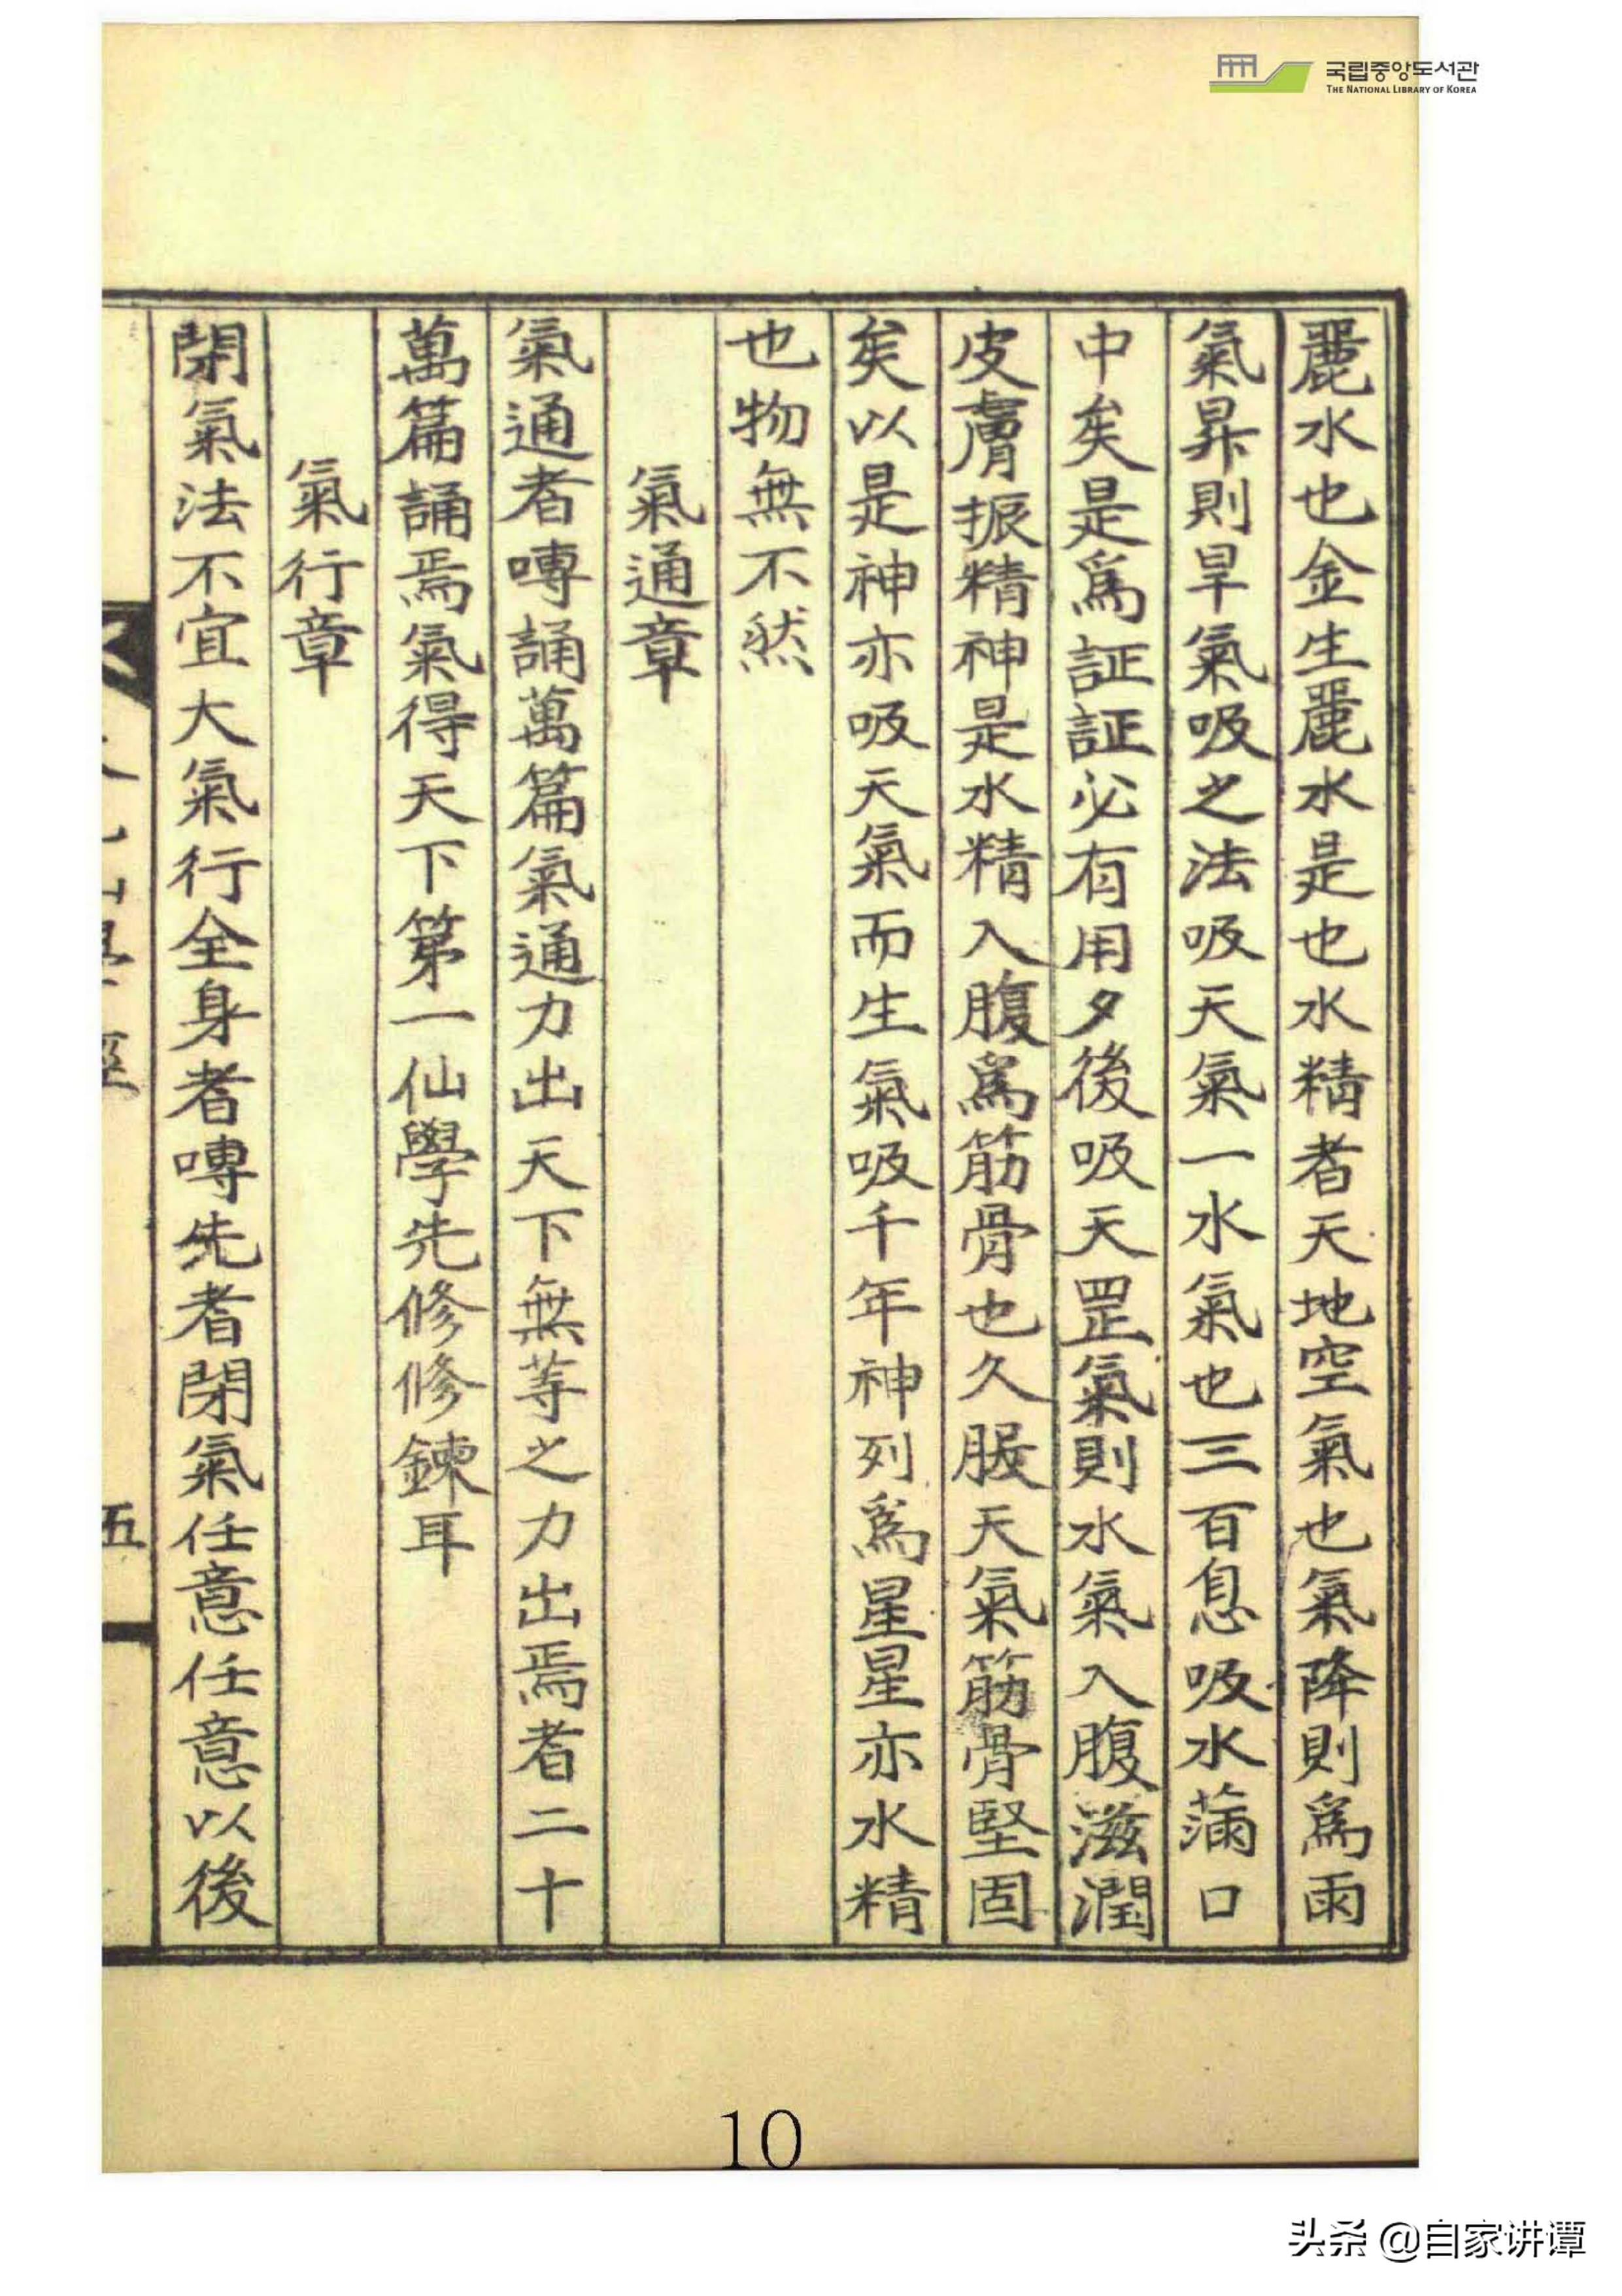 국립중앙도서관
THE NATIONAL LIBRARY OF KOREA
麗水也金生麗水是也水精者天地空氣也氣降則爲雨
氣昇則旱氣吸之法吸天氣一水氣也三百息吸水滿口
中矣是爲証証必有用夕後吸天罡氣則水氣入腹滋潤
皮膚振精神是水精入腹爲筋骨也久服天氣筋骨堅固
矣以是神亦吸天氣而生氣吸千年神列爲星星亦水精
也物無不然
氣通章
氣通者嘑誦萬篇氣通力出天下無等之力出焉者二十
萬篇誦焉氣得天下第一仙學先修修鍊耳
氣行章
閉氣法不宜大氣行全身者嘑先者閉氣任意任意以後
五
10
头条 @自家讲谭